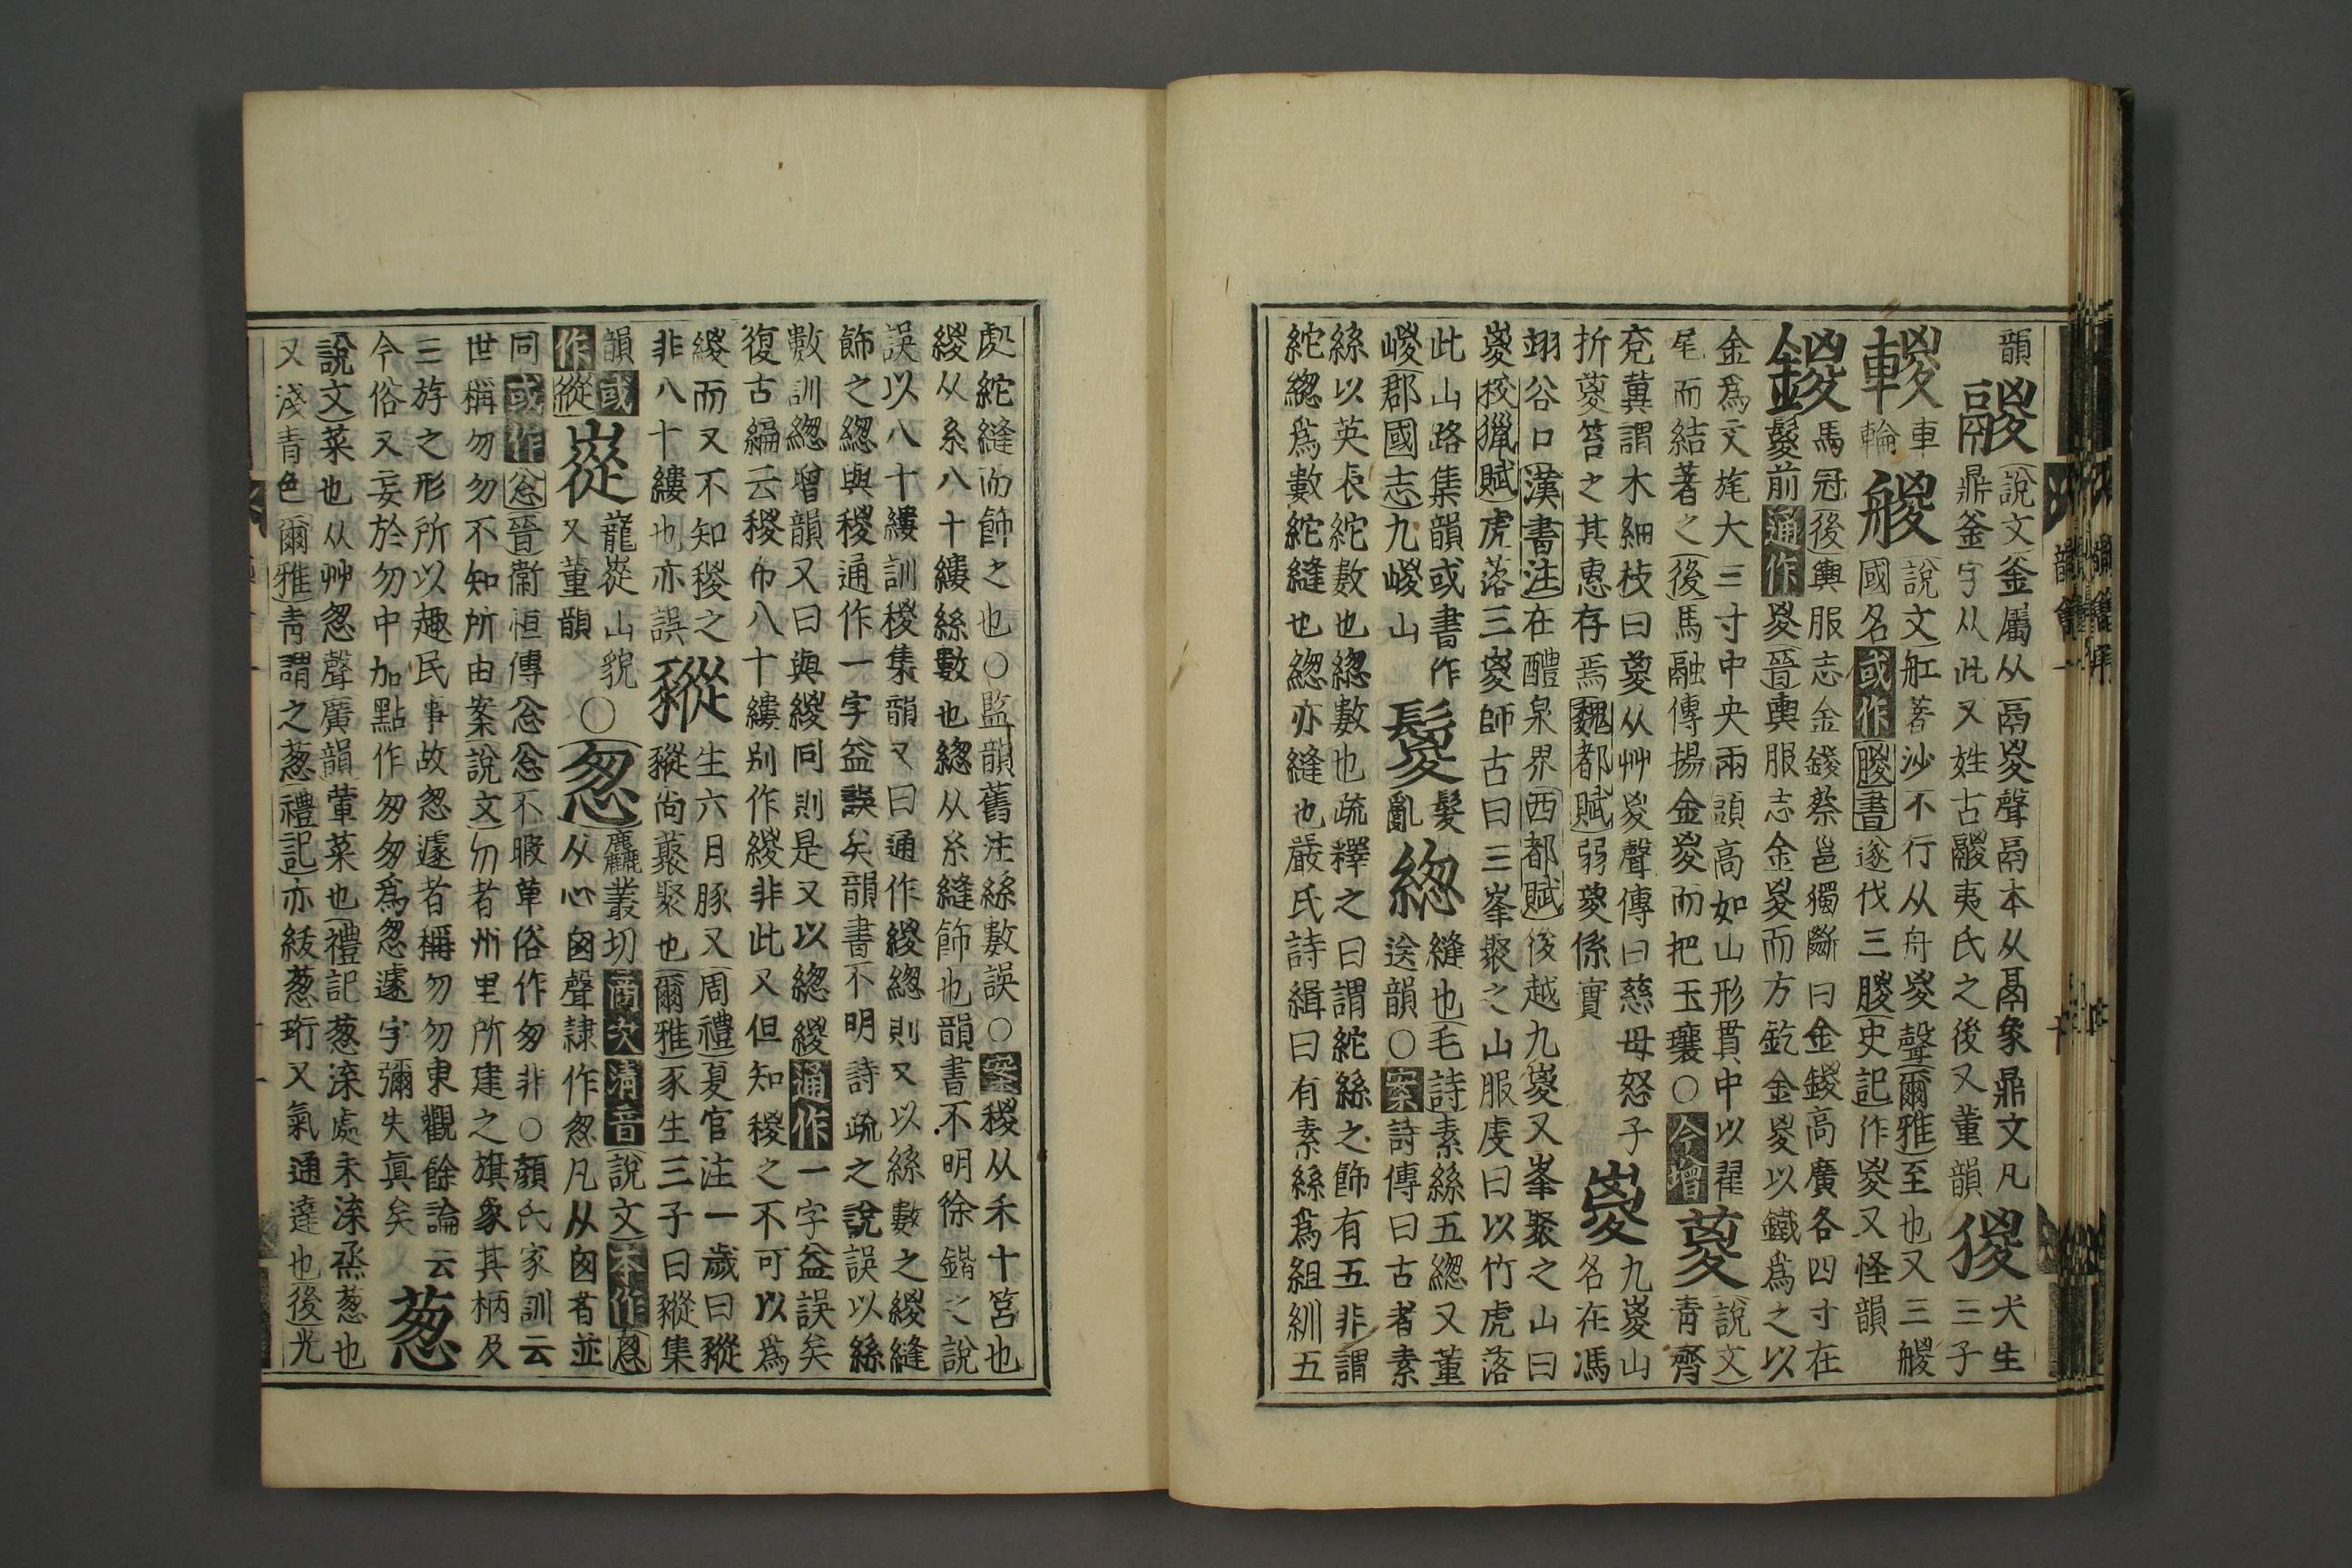 韻鬷說文釜屬从鬲㚇聲鬲本从䰜象鼎文凡
鼎釜字从此又姓古鬷夷氏之後又董韻猣犬生三子
䡯車輪艐說文舡著沙不行从舟㚇聲爾雅至也又三艐
國名或作朡書遂伐三朡史記作㚇又怪韻
鍐馬冠後輿服志金錽蔡邕獨斷曰金鍐高廣各四寸在
髮前通作㚇晉輿服志金㚇而方釳金㚇以鐵爲之以
金爲文旄大三寸中央兩頭高如山形貫中以翟
尾而結著之後馬融傳揚金㚇而把玉瓖○今增葼說文青齊
兗冀謂木細枝曰葼从艸㚇聲傳曰慈母怒子
折葼笞之其惠存焉魏都賦弱葼係實嵏九嵏山名在馮
翊谷口漢書注在醴泉界西都賦後越九嵏又峯聚之山曰
嵏校獵賦虎落三嵏師古曰三峯聚之山服虔曰以竹虎落
此山路集韻或書作
嵕郡國志九嵕山鬉髮亂緫縫也毛詩素絲五緫又董
送韻○案詩傳曰古者素
絲以英裘紽數也緫數也疏釋之曰謂紽絲之飾有五非謂
紽緫爲數紽縫也緫亦縫也嚴氏詩緝曰有素絲爲組紃五
處紽縫而飾之也○監韻舊注絲數誤○案稯从禾十筥也
緵从糸八十縷絲數也緫从糸縫飾也韻書不明徐鍇之說
誤以八十縷訓稯集韻又曰通作緵緫則又以絲數之緵縫
飾之緫與稯通作一字益誤矣韻書不明詩疏之說誤以絲
數訓緫增韻又曰與緵同則是又以緫緵通作一字益誤矣
復古編云稯布八十縷別作緵非此又但知稯之不可以爲
緵而又不知稯之
非八十縷也亦誤豵生六月豚又周禮夏官注一歲曰豵
豵尚藂聚也爾雅豕生三子曰豵集
韻或
作䝋嵷巃嵷山貌
又董韻○怱麤叢切商次清音說文本作悤
从心囪聲隷作怱凡从囪者並
同或作忩晉常恒傳忩忩不暇草俗作匆非○顏氏家訓云
世稱勿勿不知所由案說文勿者州里所建之旗象其柄及
三斿之形所以趣民事故怱遽者稱勿勿東觀餘論云
今俗又妄於勿中加點作匆匆爲怱遽字彌失眞矣葱
說文菜也从艸怱聲廣韻葷菜也禮記葱渿處末渿烝葱也
又淺青色爾雅青謂之葱禮記亦紱葱珩又氣通達也後光